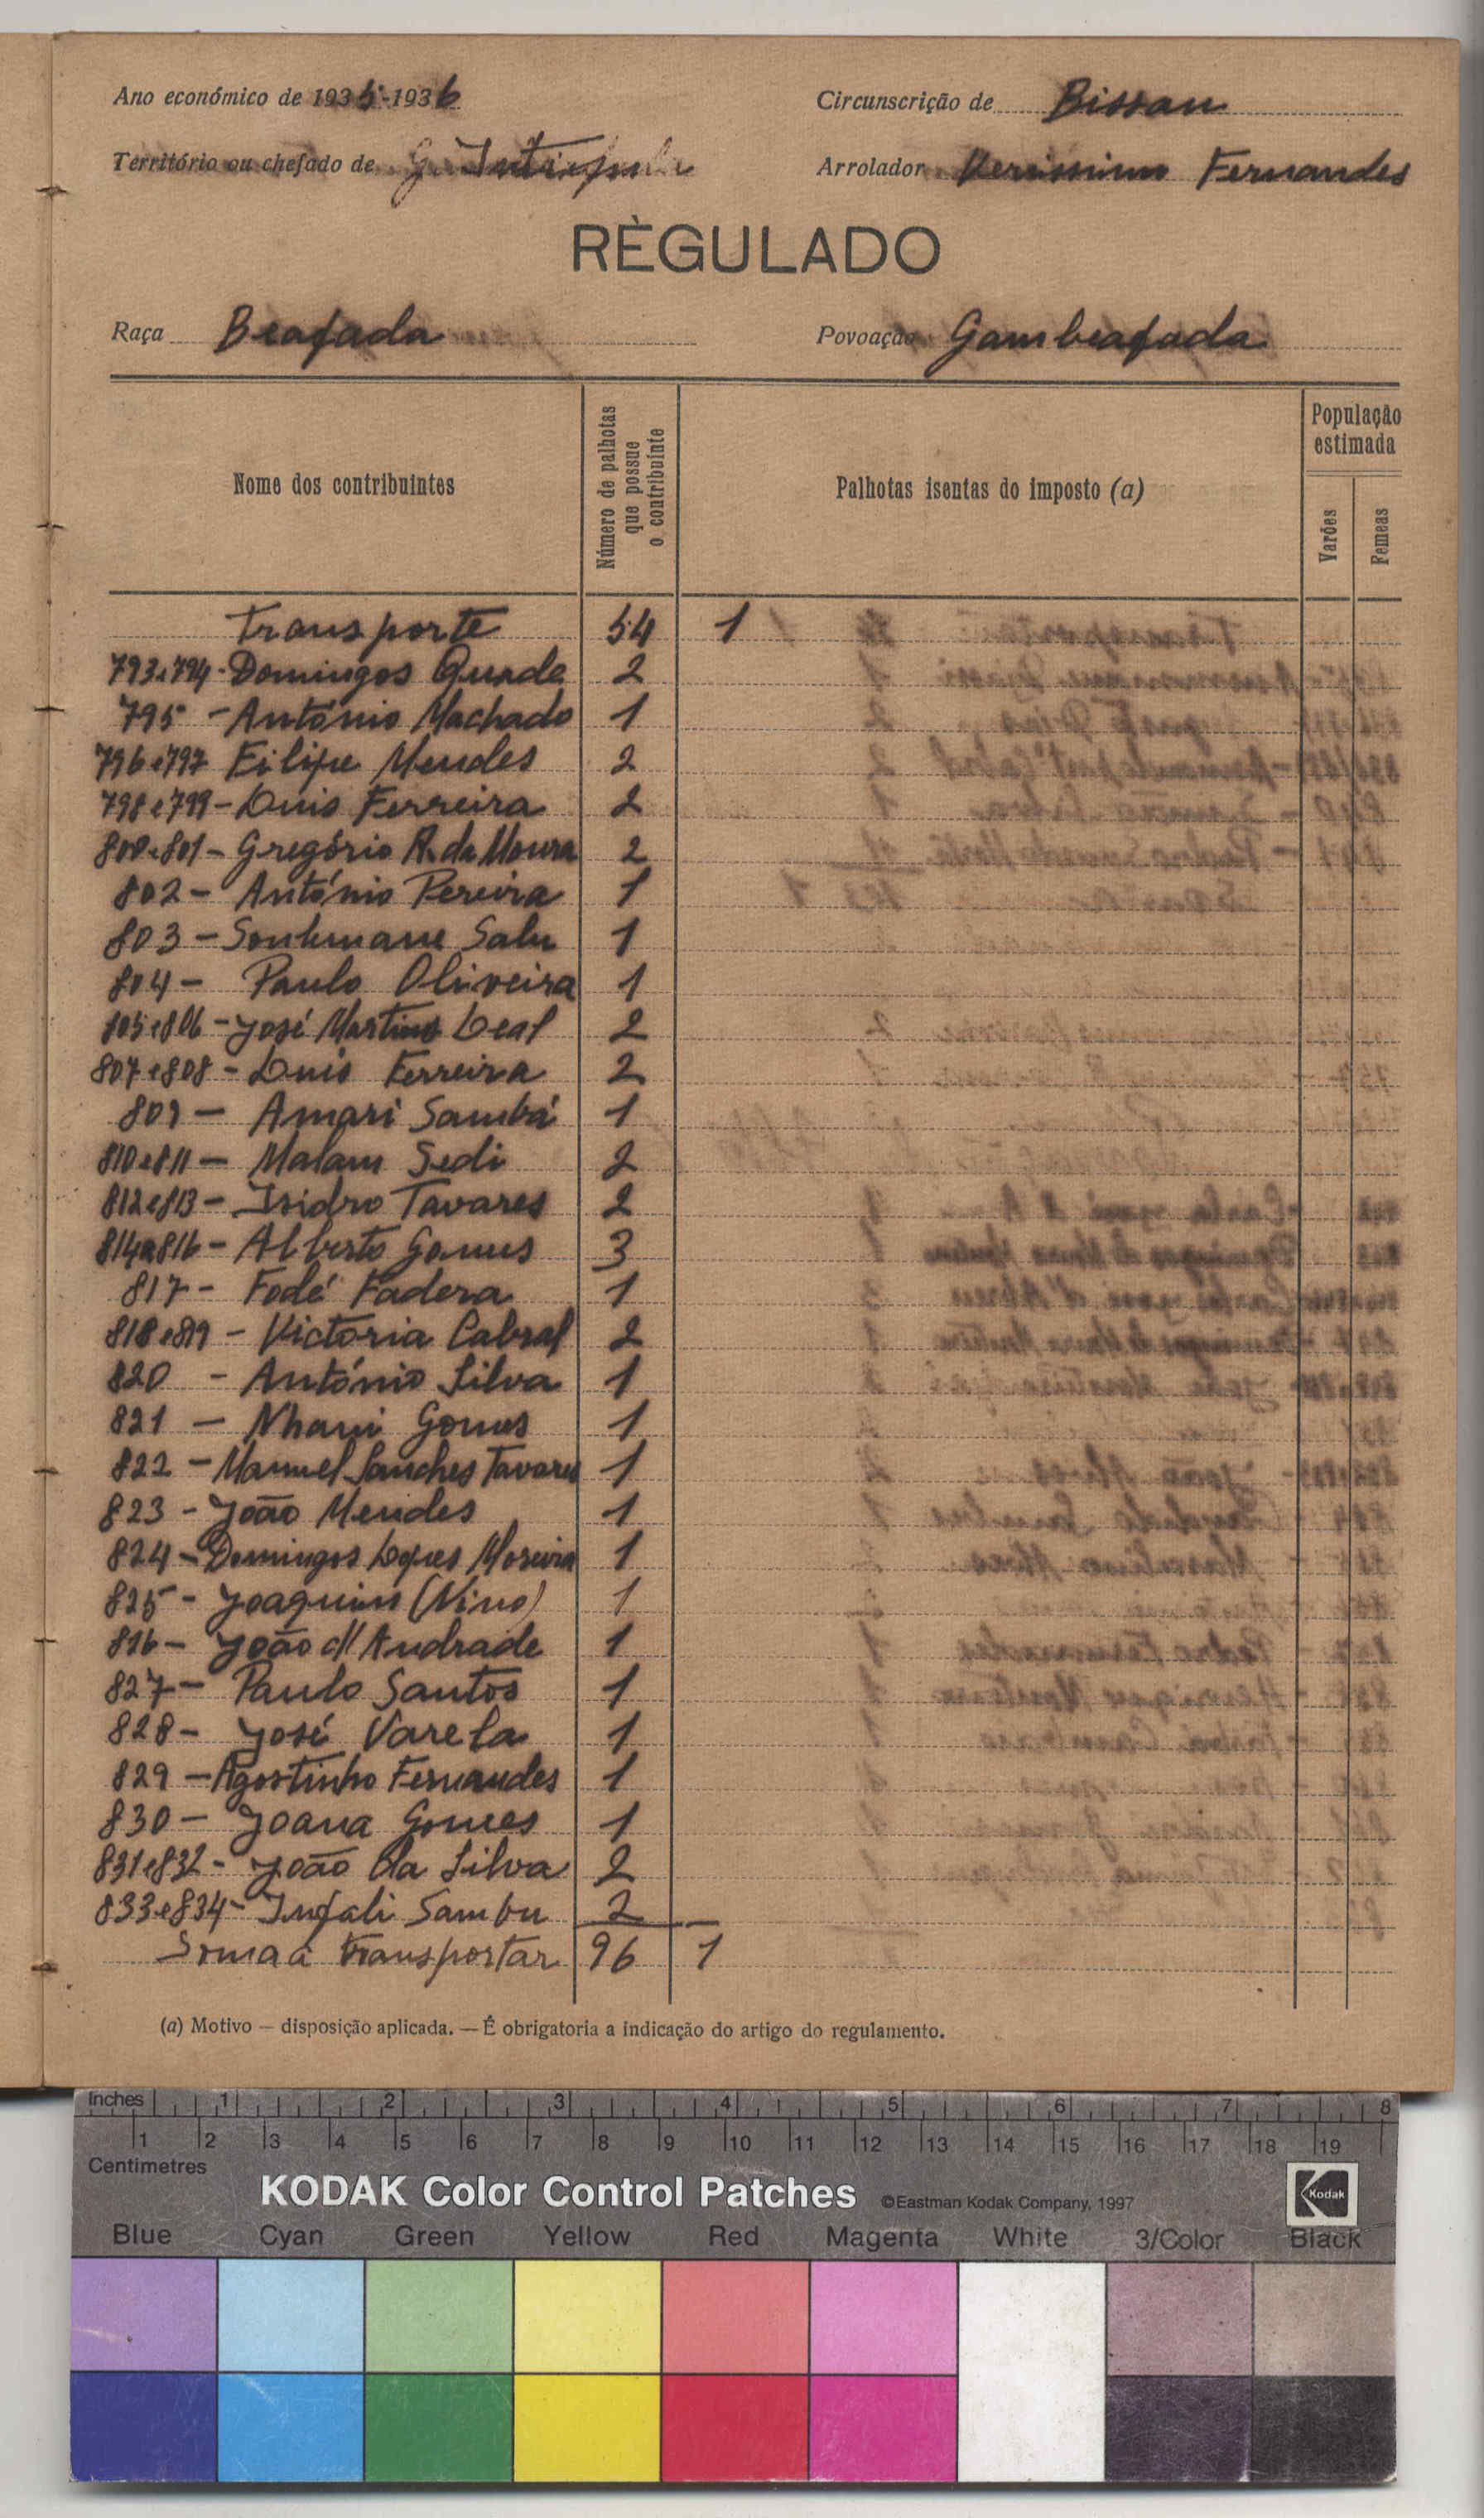 Ano económico de 1935-1936
Circunscrição de Bissau
Território ou chefado de G. Intim
Arrolador Verissimo Fernandes
RÈGULADO
Raça Beafada
Povoação Gambeafada
Nome dos contribuintes
Número de palhotas que possue o contribuinte
Palhotas isentas do imposto (a)
População estimada
Varões
Femeas
Transporte 54 1
793e794-Domingos Quade 2
795-António Machado 1
796e797 Filipe Mendes 2
798e799-Luis Ferreira 2
800e801-Gregório R. da Moura 2
802-António Pereira 1
803-Soulemane Salu 1
804-Paulo Oliveira 1
805e806-José Martins Leal 2
807e808-Luis Ferreira 2
809-Amari Sambá 1
810e811-Malam Sedi 2
812e813-Isidro Tavares 2
814a816-Alberto Gomes 3
817-Fodé Fadera 1
818e819-Victoria Cabral 2
820-António Silva 1
821-Nhani Gomes 1
822-Manuel Sanches Tavares 1
823-João Mendes 1
824-Domingos Lopes Moreira 1
825-Joaquim (Nino) 1
816-João d'Andrade 1
827-Paulo Santos 1
828-José Varela 1
829-Agostinho Fernandes 1
830-Joana Gomes 1
831e832-João da Silva 2
833e834-Infali Sambu 2
Soma a transportar 96 1
(a) Motivo — disposição aplicada. — É obrigatoria a indicação do artigo do regulamento.
Inches 1 2 3 4 5 6 7 8
1 2 3 4 5 6 7 8 9 10 11 12 13 14 15 16 17 18 19
Centimetres
KODAK Color Control Patches ©Eastman Kodak Company, 1997 Kodak
Blue Cyan Green Yellow Red Magenta White 3/Color Black